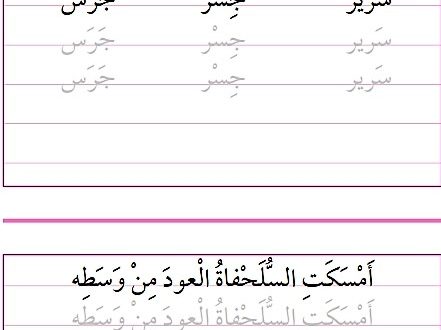 سرير جسر جرس
سَرير جِسْر جَرَس
سَرير جِسْر جَرَس
أَمْسَكَتِ السُّلَحْفاةُ الْعودَ مِنْ وَسَطِه
أَمْسَكَتِ السُّلَحْفاةُ الْعودَ مِنْ وَسَطِه